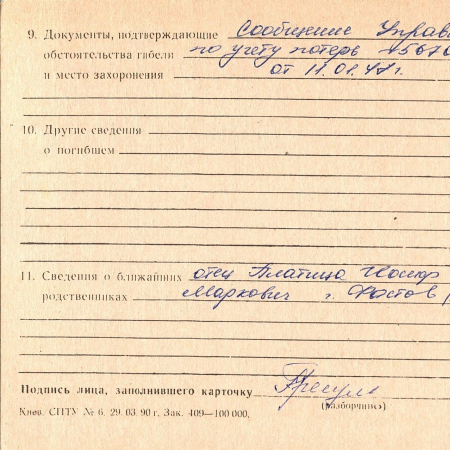 9. Документы, подтверждающие Сообщение Управ
обстоятельства гибели по учету потерь
и место захоронения от 11.01.47г.
10. Другие сведения
о погибшем
11. Сведения о ближайших отец Платица Иосиф
родственниках Маркович г. Ростов
Подпись лица, заполнившего карточку
(разборчиво)
Киев. СПТУ № 6. 29. 03. 90 г. Зак. 409—100 000.